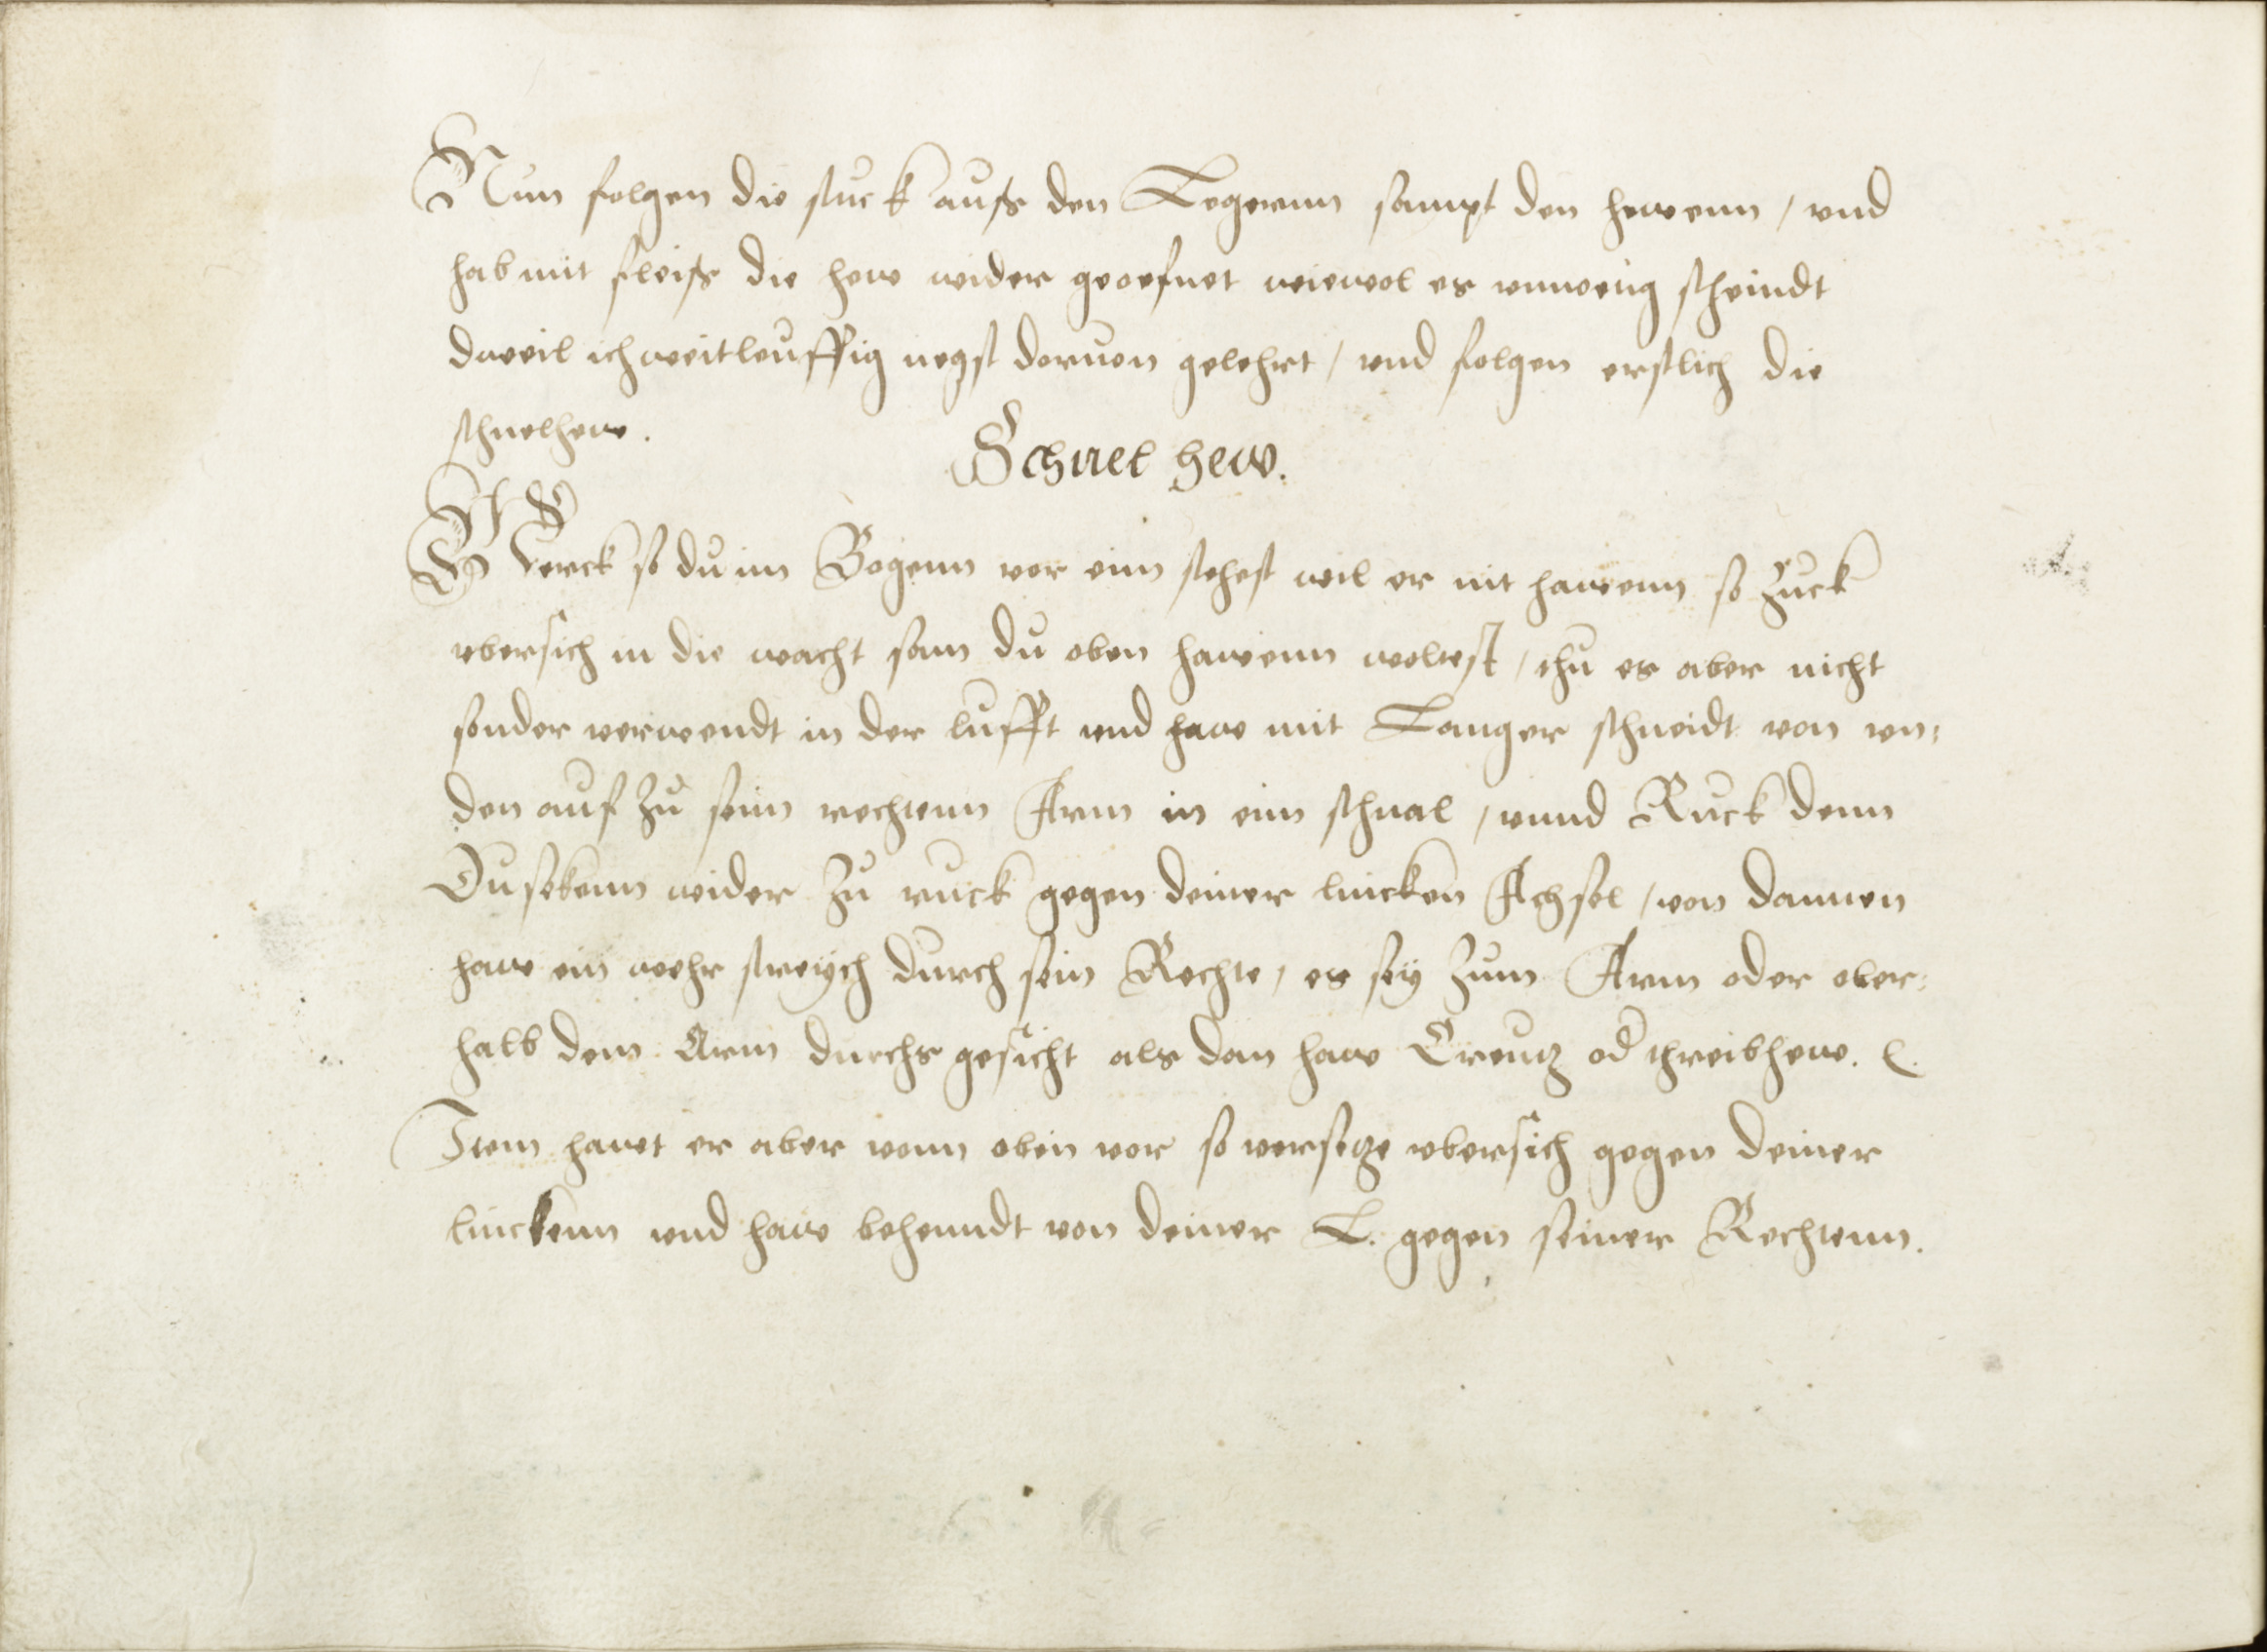 Nun folgen die stuck auſs den Legernn sampt den hewenn / vnd
hab mit fleiſs die hew wider geoefnet wiewol es vnnoetig scheindt
dweil ich weitleuffig negst dauon gelehrt / vnd folgen erstlich die
schnelhew.
Schnel hew.
Merck so du im Bogenn vor eim stehest wil er nit hawenn so Zuck
vbersich in die wacht sam du oben hawenn woltest / thu es aber nicht
sonder verwendt in der lufft vnd haw mit Langer schneidt von vn:
den auf Zu seim rechtenn Arm in eim schnal / vnnd Ruck denn
Dusekenn wider Zu ruck gegen deiner lincken Achsel / von dannen
haw ein wehr streych durch sein Rechte / es sey Zum Arm oder ober:
halb dem Arm durchs gesicht als dan haw Creutz od threibhew.
Item hawt er aber vonn oben vor so versetze vbersich gegen deiner
linckenn vnd haw behenndt von deiner L. gegen seiner Rechtenn.